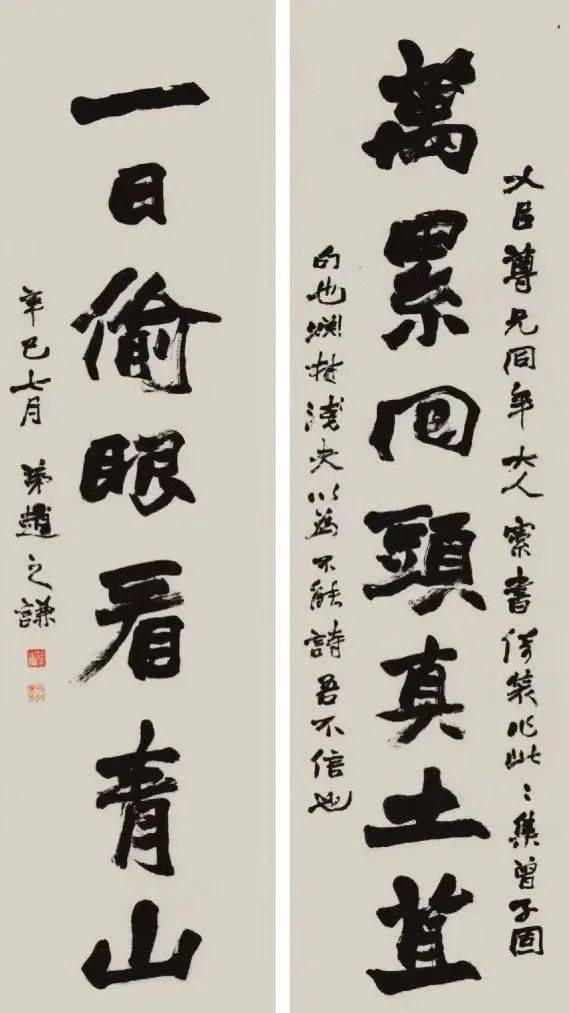 以臣尊兄同年大人索書倚裝作此〻集曾子固
萬累回頭真土苴
句也淵材淺夫以為不能詩吾不信也
一日偷眼看青山
辛巳七月 弟趙之謙